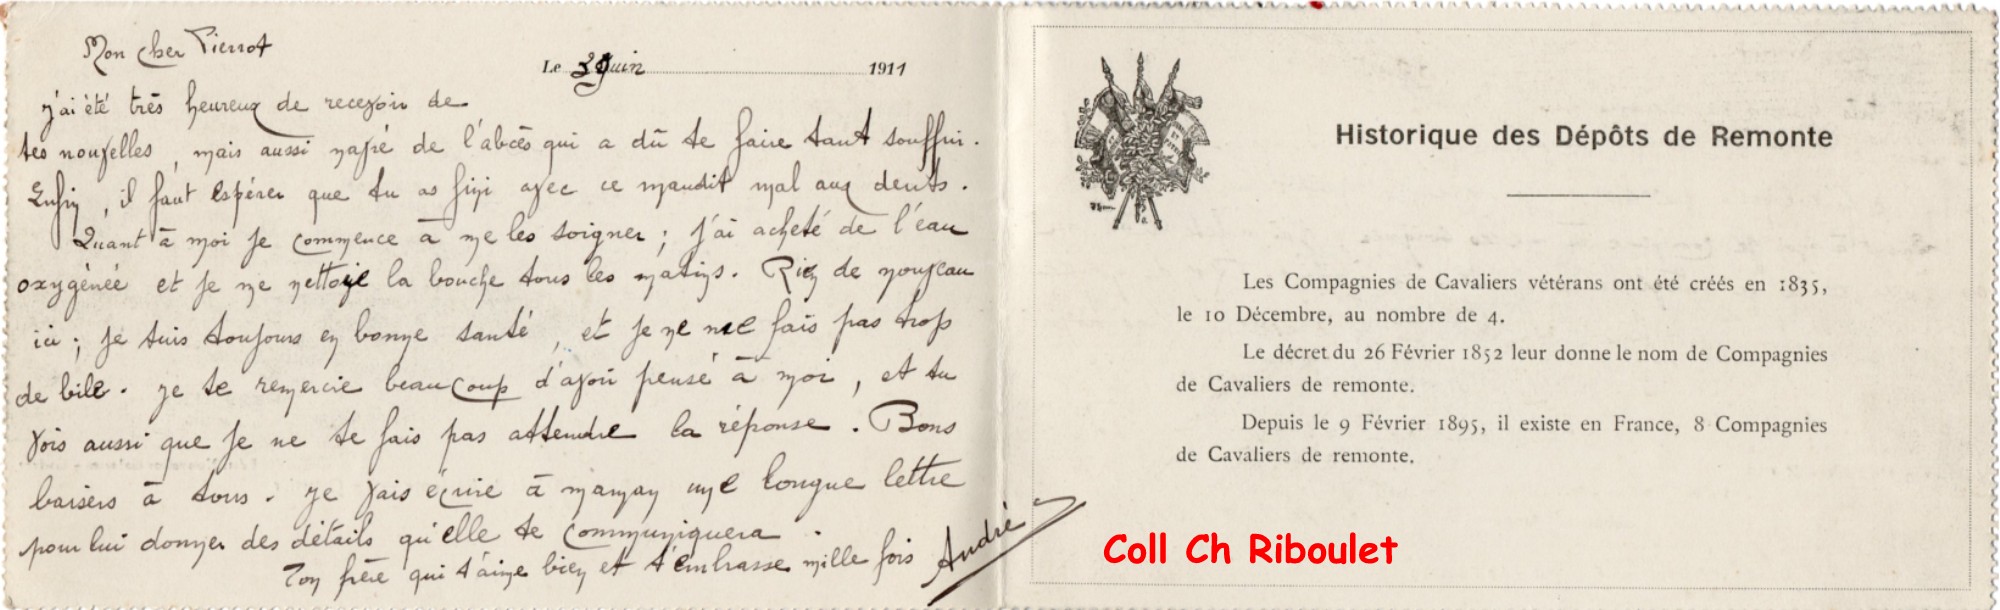 Mon cher Pierrot
Le Juin 1911
J'ai été très heureux de recevoir de
tes nouvelles, mais aussi navré de l'abcès qui a dû te faire tant souffrir.
Enfin, il faut espérer que tu as fini avec ce maudit mal aux dents.
Quant à moi je commence à me les soigner ; j'ai acheté de l'eau
oxygénée et je me nettoie la bouche tous les matins. Rien de nouveau
ici ; je suis toujours en bonne santé, et je ne me fais pas trop
de bile. Je te remercie beaucoup d'avoir pensé à moi, et tu
vois aussi que je ne te fais pas attendre la réponse. Bons
baisers à tous. Je vais écrire à maman une longue lettre
pour lui donner des détails qu'elle te communiquera.
Ton frère qui t'aime bien et t'embrasse mille fois André
Historique des Dépôts de Remonte
Les Compagnies de Cavaliers vétérans ont été créés en 1835,
le 10 Décembre, au nombre de 4.
Le décret du 26 Février 1852 leur donne le nom de Compagnies
de Cavaliers de remonte.
Depuis le 9 Février 1895, il existe en France, 8 Compagnies
de Cavaliers de remonte.
Coll Ch Riboulet